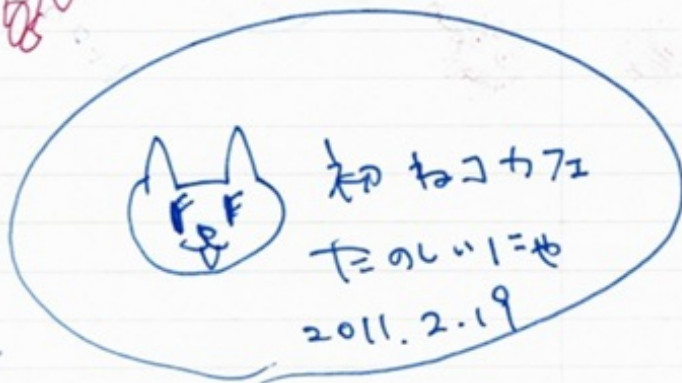 初ねコカフェ
たのしいにゃ
2011.2.19